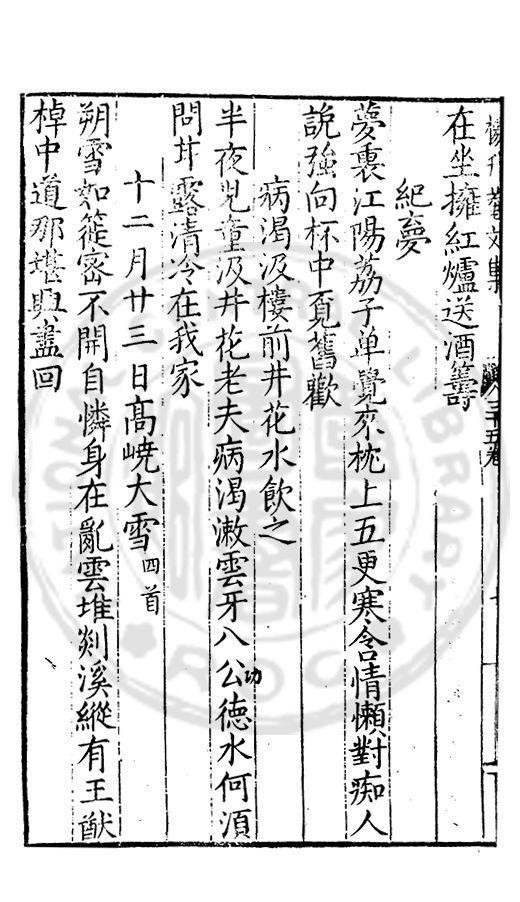 楊升菴文集 三十五卷
在坐擁紅爐送酒籌
紀夢
夢裏江陽荔子單覺來枕上五更寒含情懶對痴人
說強向杯中覓舊歡
病渴汲樓前井花水飲之
半夜兒童汲井花老夫病渴漱雲牙八公功德水何須
問甘露清冷在我家
十二月廿三日高嶢大雪四首
朔雪如簁密不開自憐身在亂雲堆剡溪縱有王猷
棹中道那堪興盡回